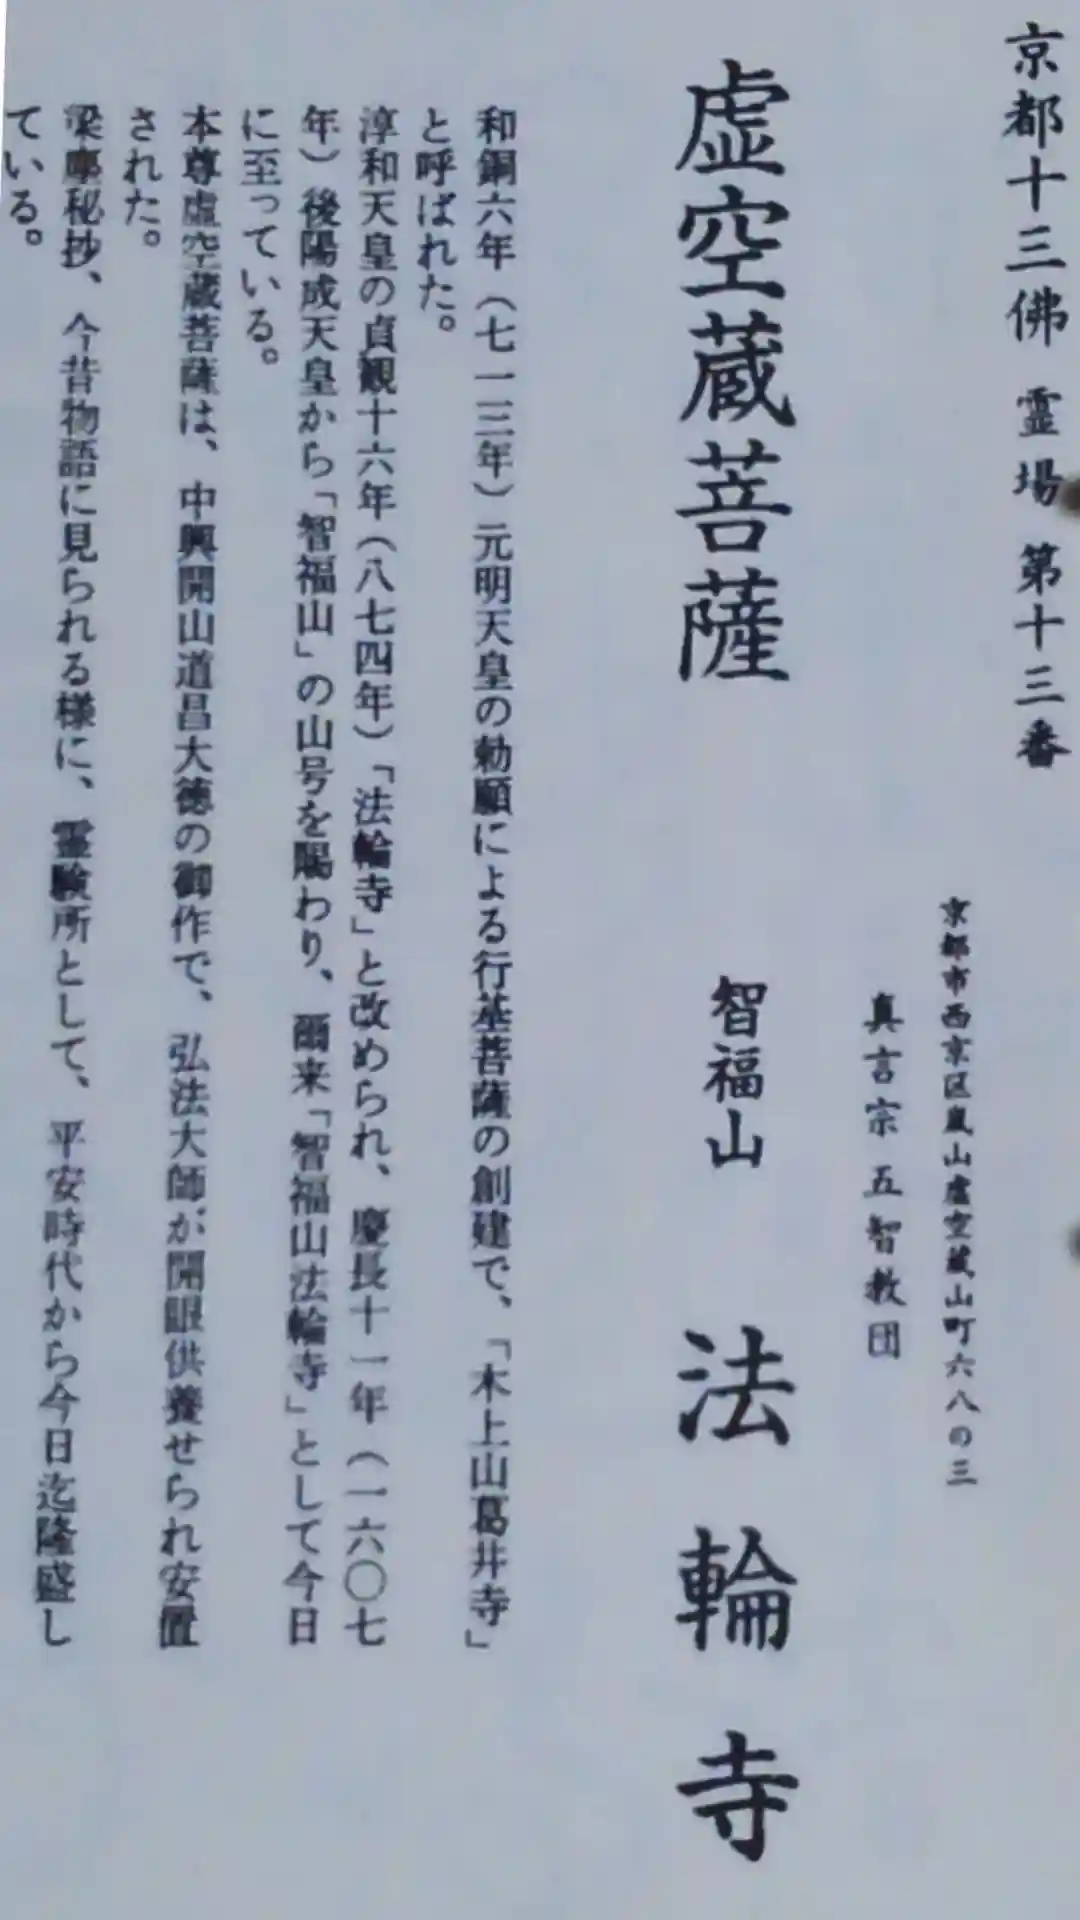 京都十三佛 霊場 第十三番
京都市西京区嵐山虚空蔵山町六八の三
真言宗五智教団
虚空蔵菩薩 智福山 法輪寺
和銅六年（七一三年）元明天皇の勅願による行基菩薩の創建で、「木上山葛井寺」
と呼ばれた。
淳和天皇の貞観十六年（八七四年）「法輪寺」と改められ、慶長十一年（一六〇七
年）後陽成天皇から「智福山」の山号を賜わり、爾来「智福山法輪寺」として今日
に至っている。
本尊虚空蔵菩薩は、中興開山道昌大徳の御作で、弘法大師が開眼供養せられ安置
された。
梁塵秘抄、今昔物語に見られる様に、霊験所として、平安時代から今日迄隆盛し
ている。